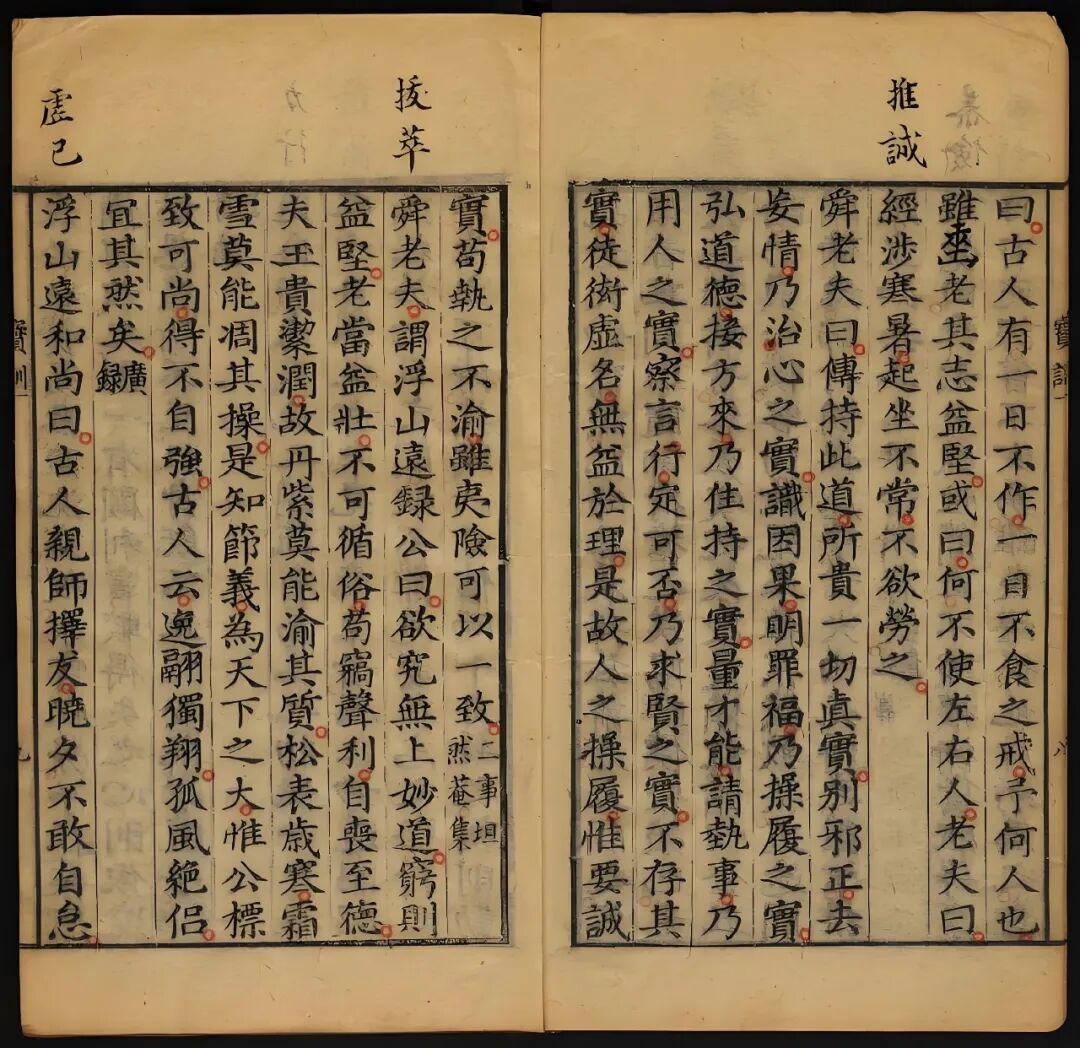 推誠
曰古人有一日不作一日不食之戒予何人也
雖垂老其志益堅或曰何不使左右人老夫曰
經涉寒暑起坐不常不欲勞之
舜老夫曰傳持此道所貴一切真實別邪正去
妄情乃治心之實識因果明罪福乃操履之實
弘道德接方來乃住持之實量才能請執事乃
用人之實察言行定可否乃求賢之實不存其
實徒衒虛名無益於理是故人之操履惟要誠
拔萃
虛己
實苟執之不渝雖夷險可以一致二事坦然菴集
舜老夫謂浮山遠録公曰欲究無上妙道窮則
益堅老當益壯不可循俗苟竊聲利自喪至德
夫玉貴潔潤故丹紫莫能渝其質松表歲寒霜
雪莫能凋其操是知節義為天下之大惟公標
致可尚得不自強古人云逸翮獨翔孤風絶侶
宜其然矣廣録
浮山遠和尚曰古人親師擇友曉夕不敢自怠
寶訓一
九